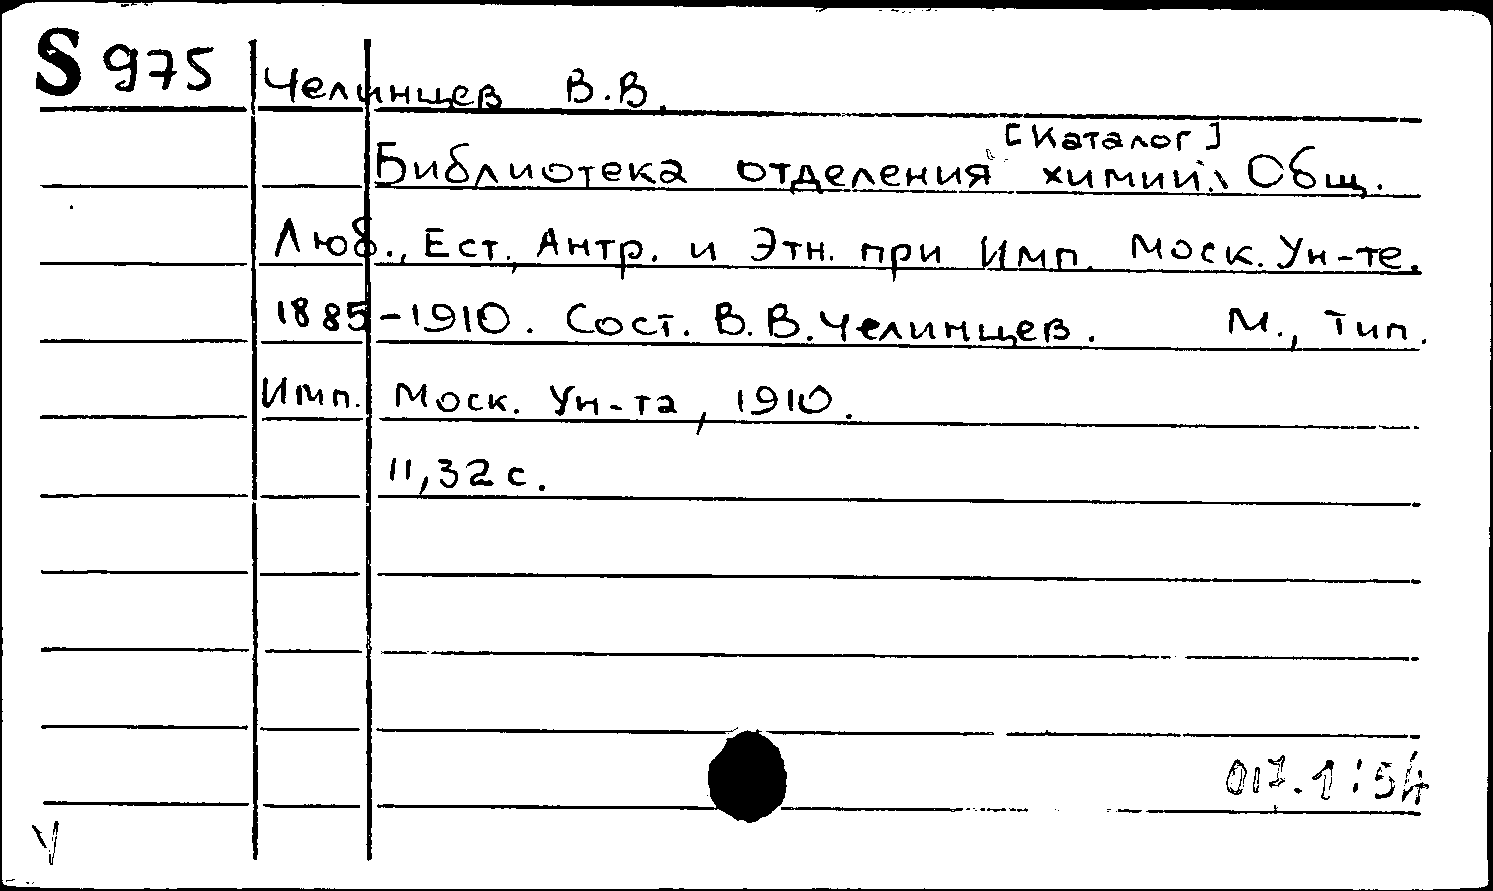 S 975
Челинцев В.В.
[Каталог]
Библиотека отделения химии. Общ.
Люб., Ест., Антр. и Этн. при Имп. Моск. Ун-те.
1885-1910. Сост. В.В. Челинцев. М., Тип.
Имп. Моск. Ун-та, 1910.
11,32 с.
017.1:54